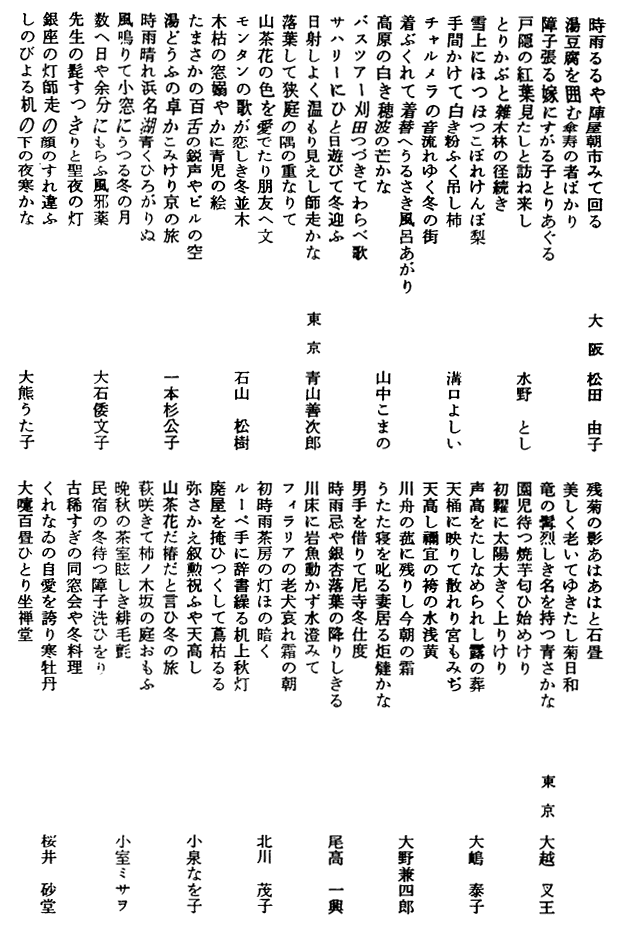 時雨るるや陣屋朝市みて回る
湯豆腐を囲む傘寿の者ばかり
障子張る嫁にすがる子とりあぐる
大阪 松田 由子
戸隠の紅葉見たしと訪ね来し
とりかぶと雑木林の径続き
雪上にほつほつこぼれけんぽ梨
水野 とし
手間かけて白き粉ふく吊し柿
チャルメラの音流れゆく冬の街
着ぶくれて着替へうるさき風呂あがり
溝口よしい
高原の白き穂波の芒かな
バスツアー刈田つづきてわらべ歌
サハリーにひと日遊びて冬迎ふ
山中こまの
日射しよく温もり見えし師走かな
落葉して狭庭の隅の重なりて
山茶花の色を愛でたり朋友へ文
東京 青山善次郎
モンタンの歌が恋しき冬並木
木枯の窓嫋やかに青児の絵
たまさかの百舌の鋭声やビルの空
石山 松樹
湯どうふの卓かこみけり京の旅
時雨晴れ浜名湖青くひろがりぬ
風鳴りて小窓にうつる冬の月
一本杉公子
数へ日や余分にもらふ風邪薬
先生の髭すつきりと聖夜の灯
銀座の灯師走の顔のすれ違ふ
大石倭文子
しのびよる机の下の夜寒かな
大熊うた子
残菊の影あはあはと石畳
美しく老いてゆきたし菊日和
竜の髯烈しき名を持つ青さかな
東京 大越 叉王
園児待つ焼芋匂ひ始めけり
初糶に太陽大きく上りけり
声高をたしなめられし露の葬
大嶋 泰子
天桶に映りて散れり宮もみぢ
天高し禰宜の袴の水浅黄
川舟の菰に残りし今朝の霜
大野兼四郎
うたた寝を叱る妻居る炬燵かな
男手を借りて尼寺冬仕度
時雨忌や銀杏落葉の降りしきる
尾高 一興
川床に岩魚動かず水澄みて
フィラリアの老犬哀れ霜の朝
初時雨茶房の灯ほの暗く
北川 茂子
ルーペ手に辞書繰る机上秋灯
廃屋を掩ひつくして蔦枯るる
弥さかえ叙勲祝ふや天高し
小泉なを子
山茶花だ椿だと言ひ冬の旅
萩咲きて柿ノ木坂の庭おもふ
晩秋の茶室眩しき緋毛氈
小室ミサヲ
民宿の冬待つ障子洗ひをり
古稀すぎの同窓会や冬料理
くれなゐの自愛を誇り寒牡丹
桜井 砂堂
大嚔百畳ひとり坐禅堂